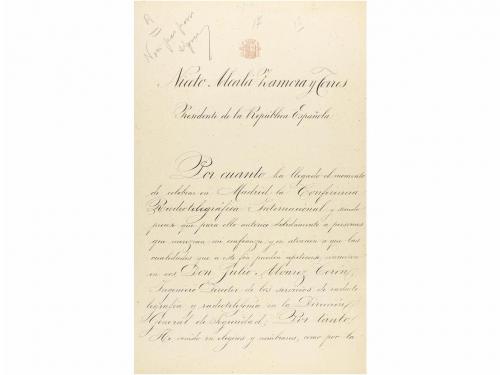 17
Niceto Alcalá Zamora y Torres
Presidente de la República Española
Por cuanto ha llegado el momento
de celebrar en Madrid la Conferencia
Radiotelegráfica Internacional y siendo
preciso que para ello autorice debidamente a personas
que merezcan mi confianza y en atención a que las
cualidades que a este fin pueden apetecerse, concurren
en vos Don Julio Alvarez Cerón,
Ingeniero Director de los servicios de radiote
legrafía y radiotelefonía en la Dirección
General de Seguridad; Por tanto
He venido en elegiros y nombraros, como por la